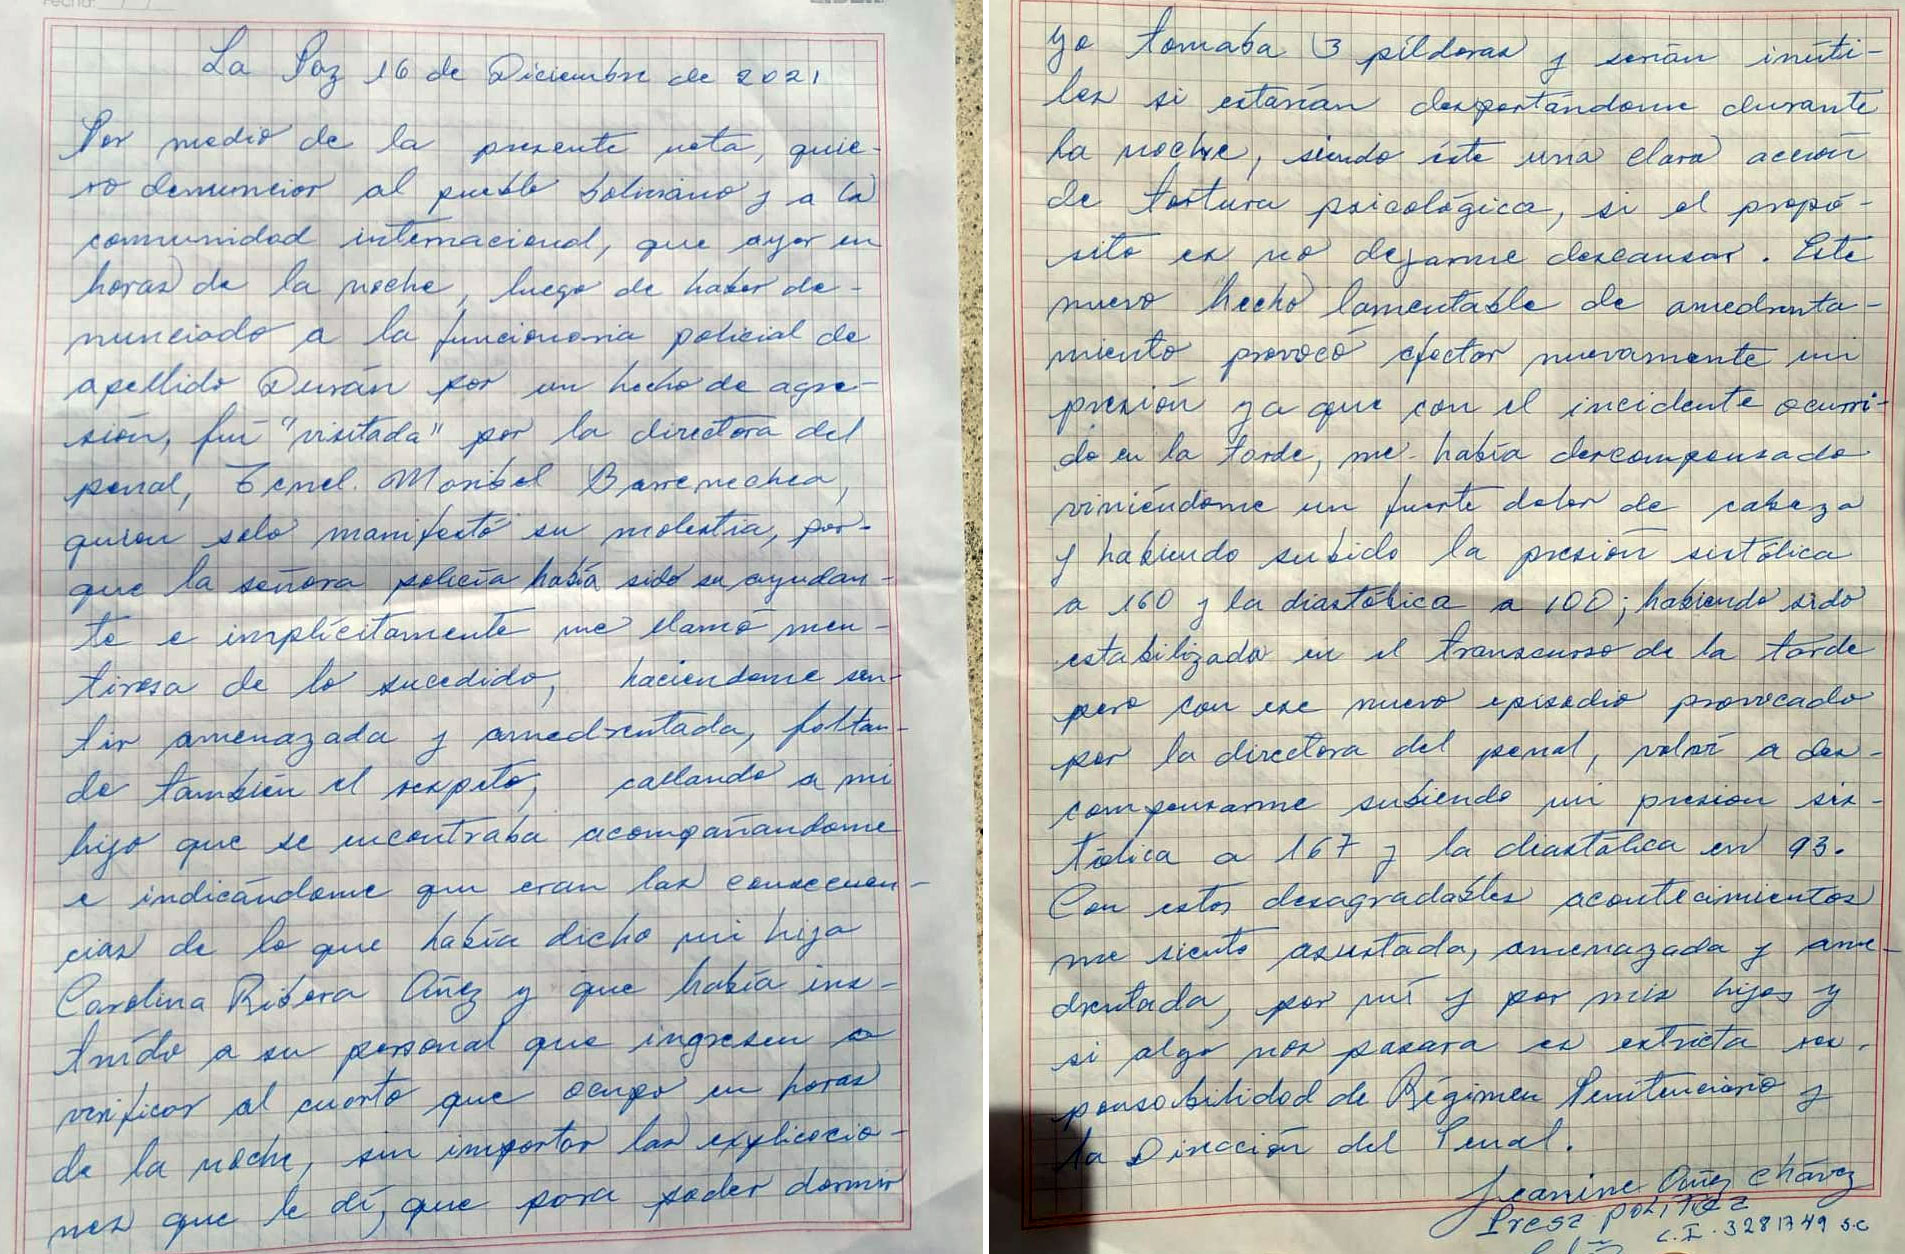 Fecha: __/__/__
LIDER
La Paz 16 de Diciembre de 2021
Por medio de la presente nota, quie-
ro denunciar al pueblo boliviano y a la
comunidad internacional, que ayer en
horas de la noche, luego de haber de-
nunciado a la funcionaria policial de
apellido Durán por un hecho de agre-
sión, fuí "visitada" por la directora del
penal, Tcnel. Maribel Barrenechea,
quien solo manifestó su molestia, por-
que la señora policía había sido su ayudan-
te e implícitamente me llamó men-
tirosa de lo sucedido, haciendome sen-
tir amenazada y amedrentada, faltan-
do también el respeto, callando a mi
hijo que se encontraba acompañandome
e indicándome que eran las consecuen-
cias de lo que había dicho mi hija
Carolina Ribera Añez y que había ins-
truído a su personal que ingresen a
verificar al cuarto que ocupo en horas
de la noche, sin importar las explicacio-
nes que le dí, que para poder dormir
yo tomaba 3 píldoras y serían inúti-
les si estarían despertándome durante
la noche, siendo éste una clara acción
de tortura psicológica, si el propó-
sito es no dejarme descansar. Este
nuevo hecho lamentable de amedrenta-
miento provocó afectar nuevamente mi
presión ya que con el incidente ocurri-
do en la tarde, me había descompensado
viniéndome un fuerte dolor de cabeza
y habiendo subido la presión sistólica
a 160 y la diastólica a 100; habiendo sido
estabilizada en el transcurso de la tarde
pero con ese nuevo episodio provocado
por la directora del penal, volví a des-
compensarme subiendo mi presion sis-
tólica a 167 y la diastólica en 93.
Con estos desagradables acontecimientos
me siento asustada, amenazada y ame-
drentada, por mí y por mis hijos y
si algo nos pasara es estricta res-
ponsabilidad de Régimen Penitenciario y
la Dirección del Penal.
Jeanine Añez Chávez
Presa política
C.I. 3281749 S.C